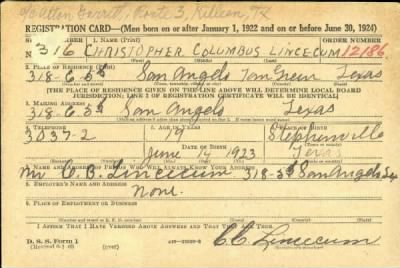 c/o Alton Garrett, Route 3, Killeen, TX
REGISTRATION CARD—(Men born on or after January 1, 1922 and on or before June 30, 1924)
SERIAL NUMBER 1. NAME (Print) ORDER NUMBER
N 316 CHRISTOPHER COLUMBUS LINCECUM 12186
(First) (Middle) (Last)
2. PLACE OF RESIDENCE (Print)
318-E-5th San Angelo Tom Green Texas
[THE PLACE OF RESIDENCE GIVEN ON THE LINE ABOVE WILL DETERMINE LOCAL BOARD
JURISDICTION; LINE 2 OF REGISTRATION CERTIFICATE WILL BE IDENTICAL]
3. MAILING ADDRESS
318-E-5th San Angelo Texas
4. TELEPHONE 5. AGE IN YEARS 6. PLACE OF BIRTH
3037-2 19 Stephenville
DATE OF BIRTH
June 14 1923 Texas
7. NAME AND ADDRESS OF PERSON WHO WILL ALWAYS KNOW YOUR ADDRESS
Mr. C. B. Lincecum 318-E-5th San Angelo Tex
8. EMPLOYER'S NAME AND ADDRESS
None.
9. PLACE OF EMPLOYMENT OR BUSINESS
I AFFIRM THAT I HAVE VERIFIED ABOVE ANSWERS AND THAT THEY ARE TRUE.
D. S. S. Form 1
(over)
C C Lincecum